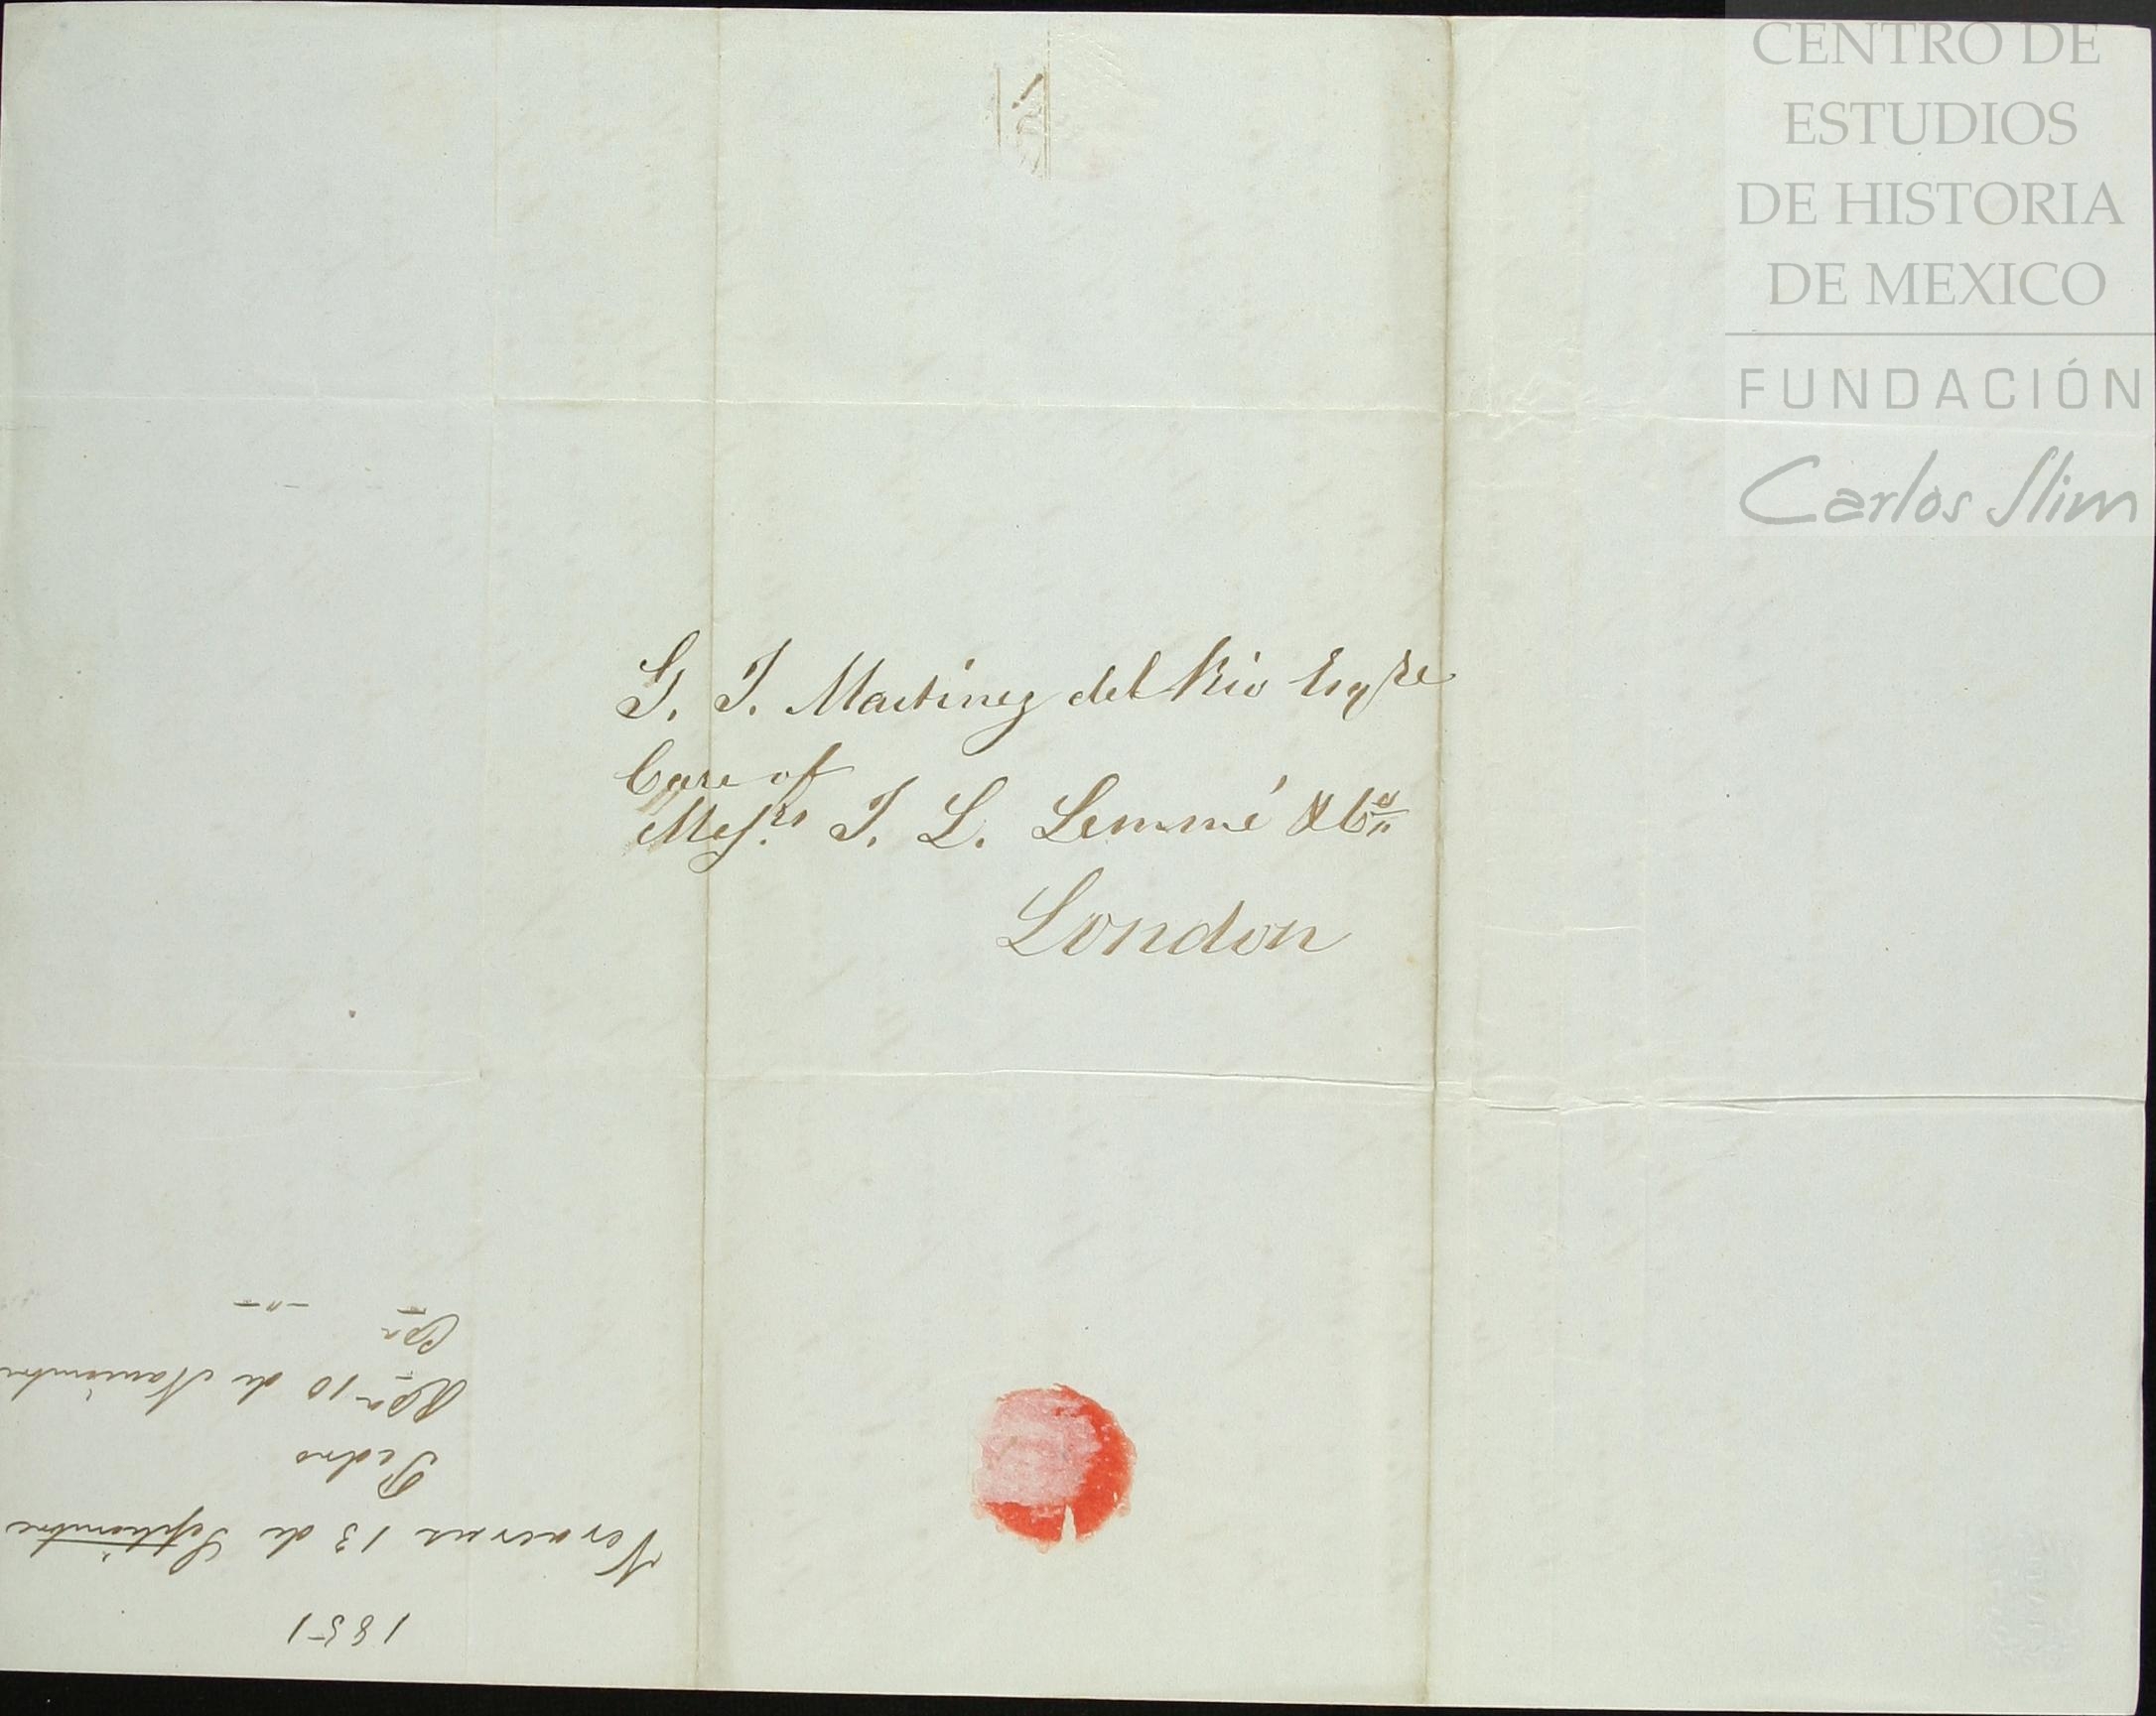 CENTRO DE
ESTUDIOS
DE HISTORIA
DE MEXICO
FUNDACIÓN
Carlos Slim
G. J. Martinez del Rio Esqre
Care of
Messrs J. L. Lemmé & Co
London
1851
Veracruz 13 de Septiembre
Pedro
10 de Noviembre